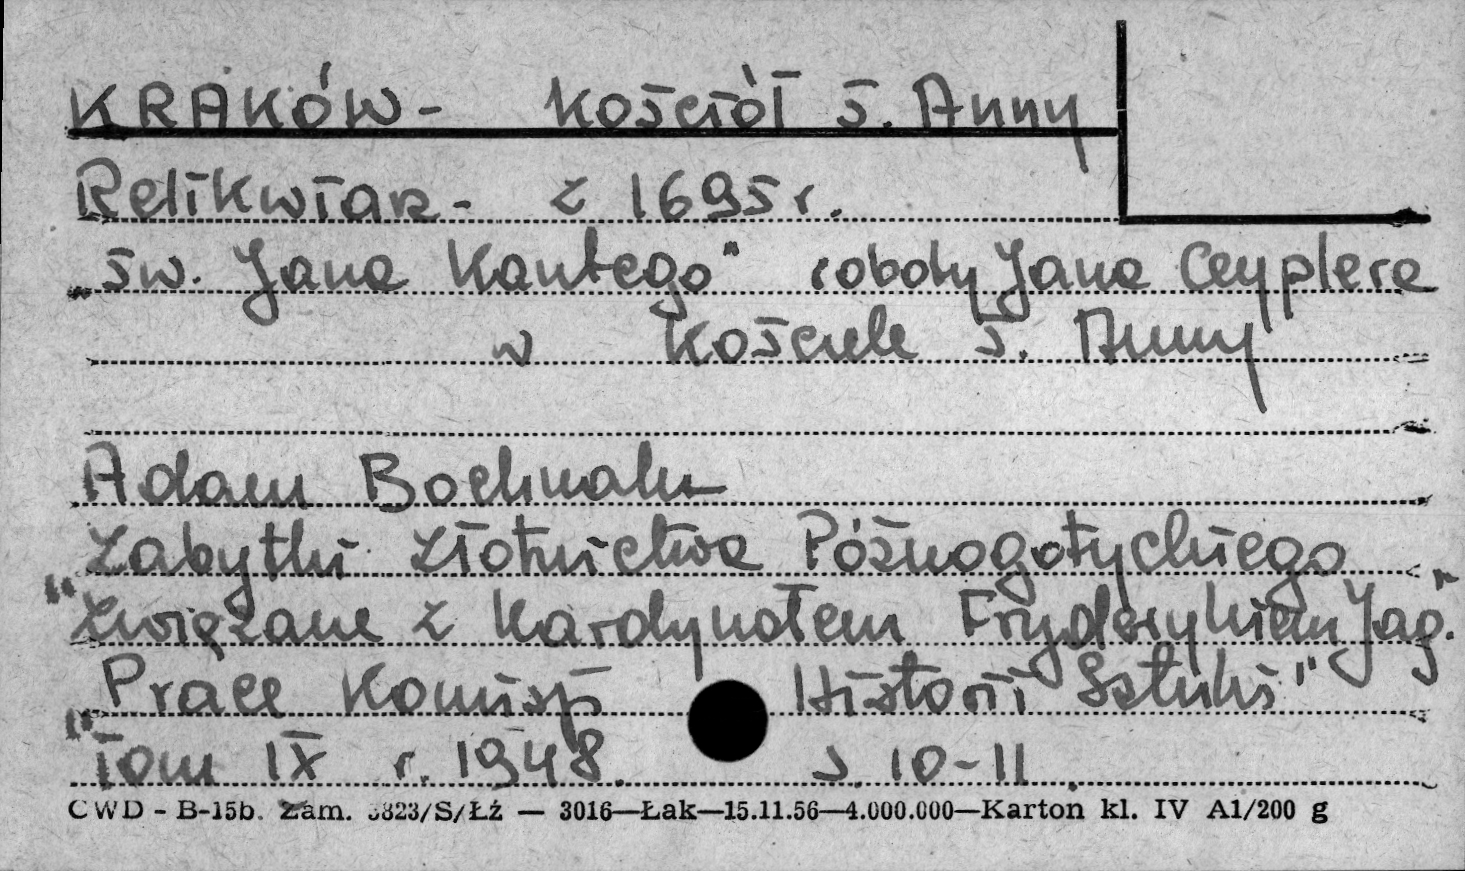 KRAKÓW - Kościół ś. Anny
Relikwiar - z 1695 r.
„św. Jana Kantego" roboty Jana Ceyplera
w Kościele ś. Anny
Adam Bochnak
Zabytki Złotnictwa Późnogotyckiego
"Związane z Kardynałem Fryderykiem Jag."
"Prace Komisji Historii Sztuki"
Tom IX r. 1948. s. 10-11
CWD - B-15b. Zam. 3823/S/Łź — 3016—Łak—15.11.56—4.000.000—Karton kl. IV A1/200 g